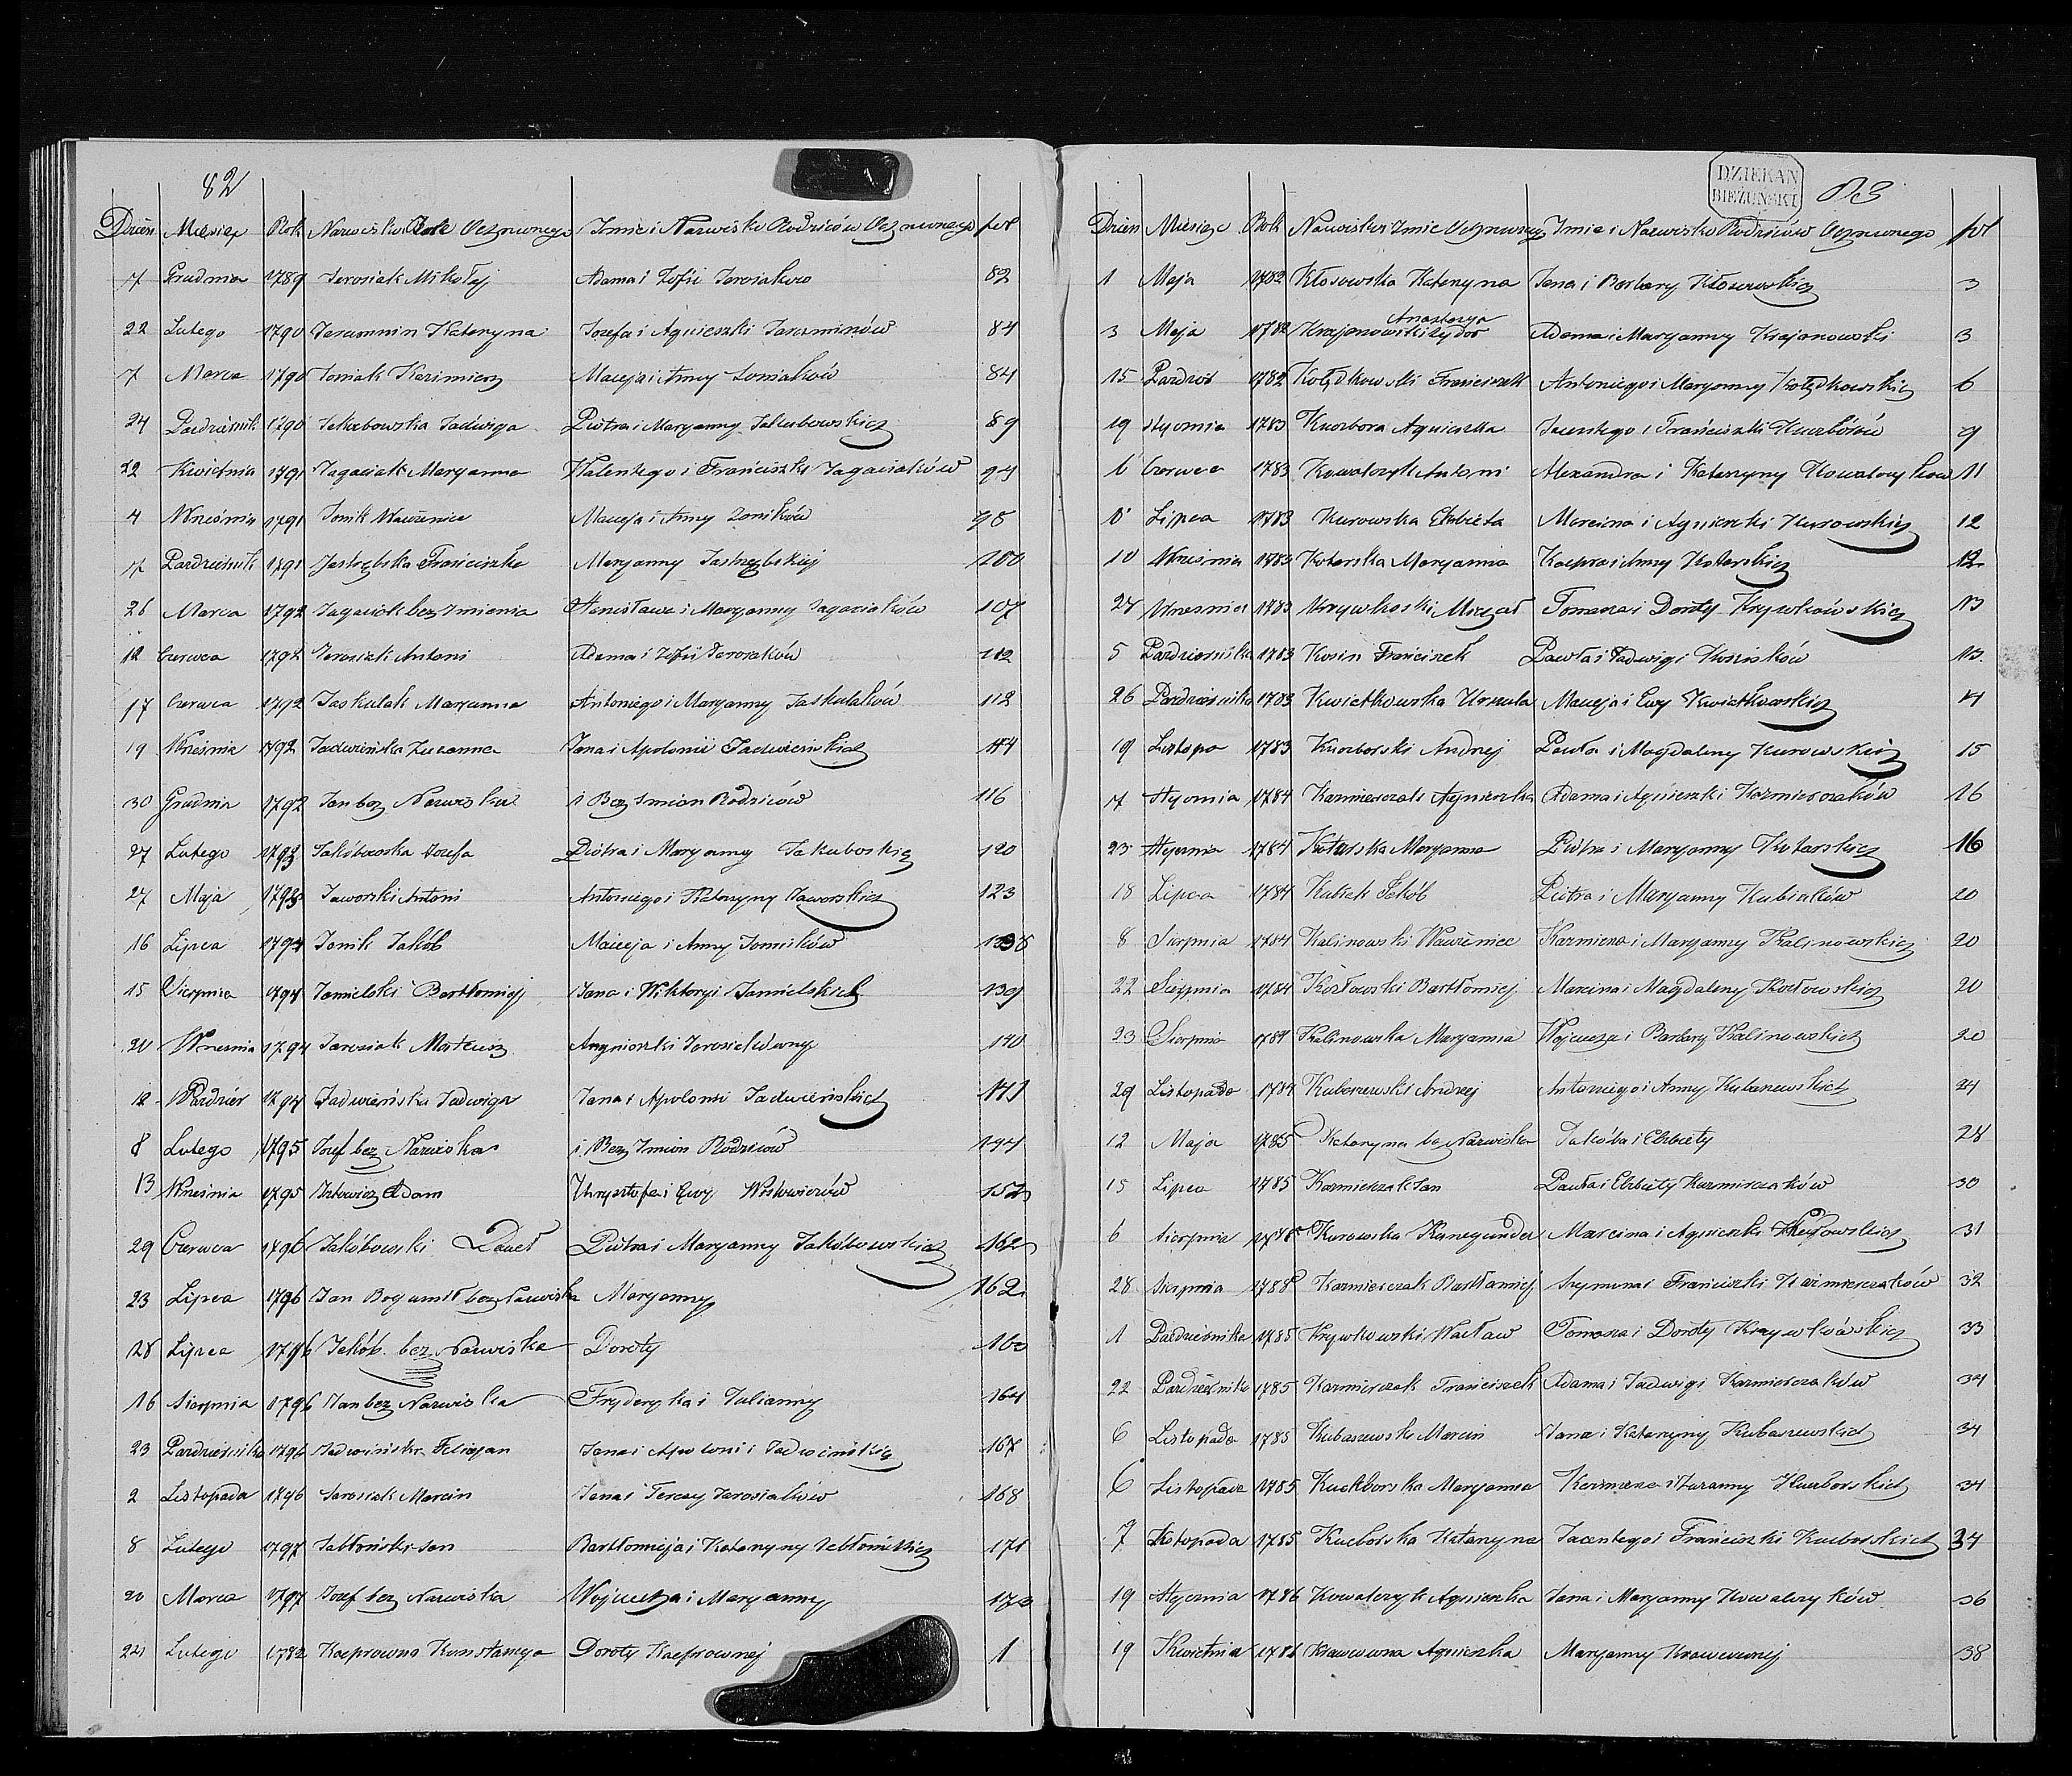 82
Dzień Miesiąc Rok Nazwisko Imie Ochrzczonego Imie i Nazwisko Rodziców Ochrzczonego fol
7 Grudnia 1789 Jarosiak Mikołaj Adama i Zofii Jarosiaków 82
22 Lutego 1790 Jaramnin Katarzyna Jozefa i Agnieszki Jaraminów 84
7 Marca 1790 Joniak Kazimierz Macieja i Anny Joniaków 84
24 Pazdziernik 1790 Jakubowska Jadwiga Piotra i Maryanny Jakubowskich 89
22 Kwietnia 1791 Jagaciak Maryanna Walentego i Franciszki Jagaciaków 94
4 Wrześnią 1791 Jonik Wawrzeniec Macieja i Anny Joników 98
17 Pazdziernik 1791 Jastrzębska Franciszka Maryanny Jastrzębskiej 100
26 Marca 1792 Jagaciak bez Imienia Stanisława i Maryanny Jagaciaków 107
12 Czerwca 1792 Jarosiak Antoni Adama i Zofii Jarosiaków 112
17 Czerwca 1792 Jaskulak Maryanna Antoniego i Maryanny Jaskulaków 112
19 Wrześnią 1792 Jadwińska Zuzanna Jana i Apolonii Jadwieńskich 114
30 Grudnia 1792 Jan bez Nazwiska i Bez Imion Rodziców 116
27 Lutego 1793 Jakóbowska Jozefa Piotra i Maryanny Jakuboskich 120
27 Maja 1793 Jaworski Antoni Antoniego i Katarzyny Jaworskich 123
16 Lipca 1794 Jonik Jakób Macieja i Anny Joników 138
15 Sierpnia 1794 Jamielski Bartłomiej Jana i Wiktoryi Jamielskich 139
20 Wrzesnia 1794 Jarosiak Mateusz Angnieszki Jarosiakówny 140
12 Pazdzier 1794 Jadwieńska Jadwiga Jana i Apolonii Jadwieńskich 141
8 Lutego 1795 Jozef bez Nazwiska i Bez Imion Rodziców 144
13 Wrześnią 1795 Adam Krzysztofa i Ewy 152
29 Czerwca 1796 Jakóbowski Paweł Piotra i Maryanny Jakóbowskich 162
23 Lipca 1796 Jan Bogumił bez Nazwiska Maryanny 162
28 Lipca 1796 Jakób bez Nazwiska Doroty 160
16 Sierpnia 1796 Jan bez Nazwiska Fryderyka i Julianny 164
23 Pazdziernika 1796 Jadwińska Felicyan Jana i Apolonii Jadwińskich 167
2 Listopada 1796 Jarosiak Marcin Jana i Teresy Jarosiaków 168
8 Lutego 1797 Jabłoński Jan Bartłomieja i Katarzyny Jabłońskich 171
20 Marca 1797 Jozef bez Nazwiska Wojciecha i Maryanny 172
24 Lutego 1782 Kacprowna Konstancya Doroty Kacprownej 1
DZIEKAN
BIEŻUŃSKI
83
Dzien Miesiąc Rok Nazwisko i Imie Ochrzczonego Imie i Nazwisko Rodziców Ochrzczonego fol
1 Maja 1782 Kłosowska Katarzyna Jana i Barbary Kłosowskich 3
3 Maja 1782 Krajonowski Izydor Anastazya Adama i Maryanny Krajonowski 3
15 Pazdzier 1782 Kołędkowski Franciszek Antoniego i Maryanny Kołędkowskich 6
19 stycznia 1783 Kuczbora Agnieszka Jacentego i Franciszki Kuczborów 9
1 Czerwca 1783 Kowalczyk Antoni Alexandra i Katarzyny Kowalczyków 11
8 Lipca 1783 Kurowska Elzbieta Marcina i Agnieszki Kurowskich 12
10 Wrześnią 1783 Kotarska Maryanna Kacpra i Anny Kotarskich 12
27 Wrzesnia 1783 Krzywkoski Michał Tomasza i Doroty Krzywkówskich 13
5 Pazdziernika 1783 Kosin Franciszek Pawła i Jadwigi Kosisków 13
26 Pazdziernika 1783 Kwiatkowska Urszula Macieja i Ewy Kwiatkowskich 14
19 Listopa 1783 Kuczborski Andrzej Pawła i Magdaleny Kurowskich 15
7 Stycznia 1784 Kazmierczak Agnieszka Adama i Agnieszki Kazmierczaków 16
23 Stycznia 1784 Kotarska Maryanna Piotra i Maryanny Kotarskich 16
18 Lipca 1784 Kubiak Jakób Piotra i Maryanny Kubiaków 20
8 Sierpnia 1784 Kalinowski Wawrzeniec Kazmierza i Maryanny Kalinowskich 20
22 Sierpnia 1784 Kozłowski Bartłomiej Marcina i Magdaleny Kozłowskich 20
23 Sierpnia 1784 Kalinowska Maryanna Wojciecha i Barbary Kalinowskich 20
29 Listopada 1784 Kubaszewski Andrzej Antoniego i Anny Kubaszewskich 24
12 Maja 1785 Katarzyna bez Nazwiska Jakóba i Elzbiety 28
15 Lipca 1785 Kazmierczak Jan Pawła i Elzbiety Kazmierczaków 30
6 Sierpnia 1785 Kurowska Kunegunda Marcina i Agnieszki Kurowskich 31
28 Sierpnia 1785 Kazmierczak Bartłomiej Szymona i Franciszki Kazmierczaków 32
1 Pazdziernika 1785 Krzywkowski Wacław Tomasza i Doroty Krzywkówskich 33
22 Pazdziernika 1785 Kazmierczak Franciszek Adama i Jadwigi Kazmierczaków 34
6 Listopada 1785 Kubaszewski Marcin Jana i Katarzyny Kubaszewskich 34
6 Listopada 1785 Kuczborska Maryanna Kazimierza i Zuzanny Kuczborskich 34
7 Listopada 1785 Kucborska Katarzyna Jacentego i Franciszki Kucborskich 34
19 Stycznia 1786 Kowalczyk Agnieszka Jana i Maryanny Kowalczyków 36
19 Kwietnia 1786 Krawcowna Agnieszka Maryanny Krawcownej 38